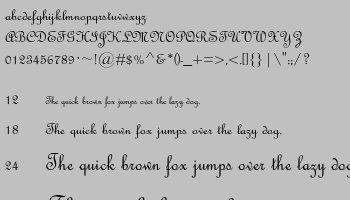 abcdefghijklmnopqrstuvwxyz
ABCDEFGHIJKLMNOPQRSTUVWXYZ
0123456789·~!@#$%^&*()-_+=>,<.[]{}|\":;/?
12 The quick brown fox jumps over the lazy dog.
18 The quick brown fox jumps over the lazy dog.
24 The quick brown fox jumps over the lazy dog